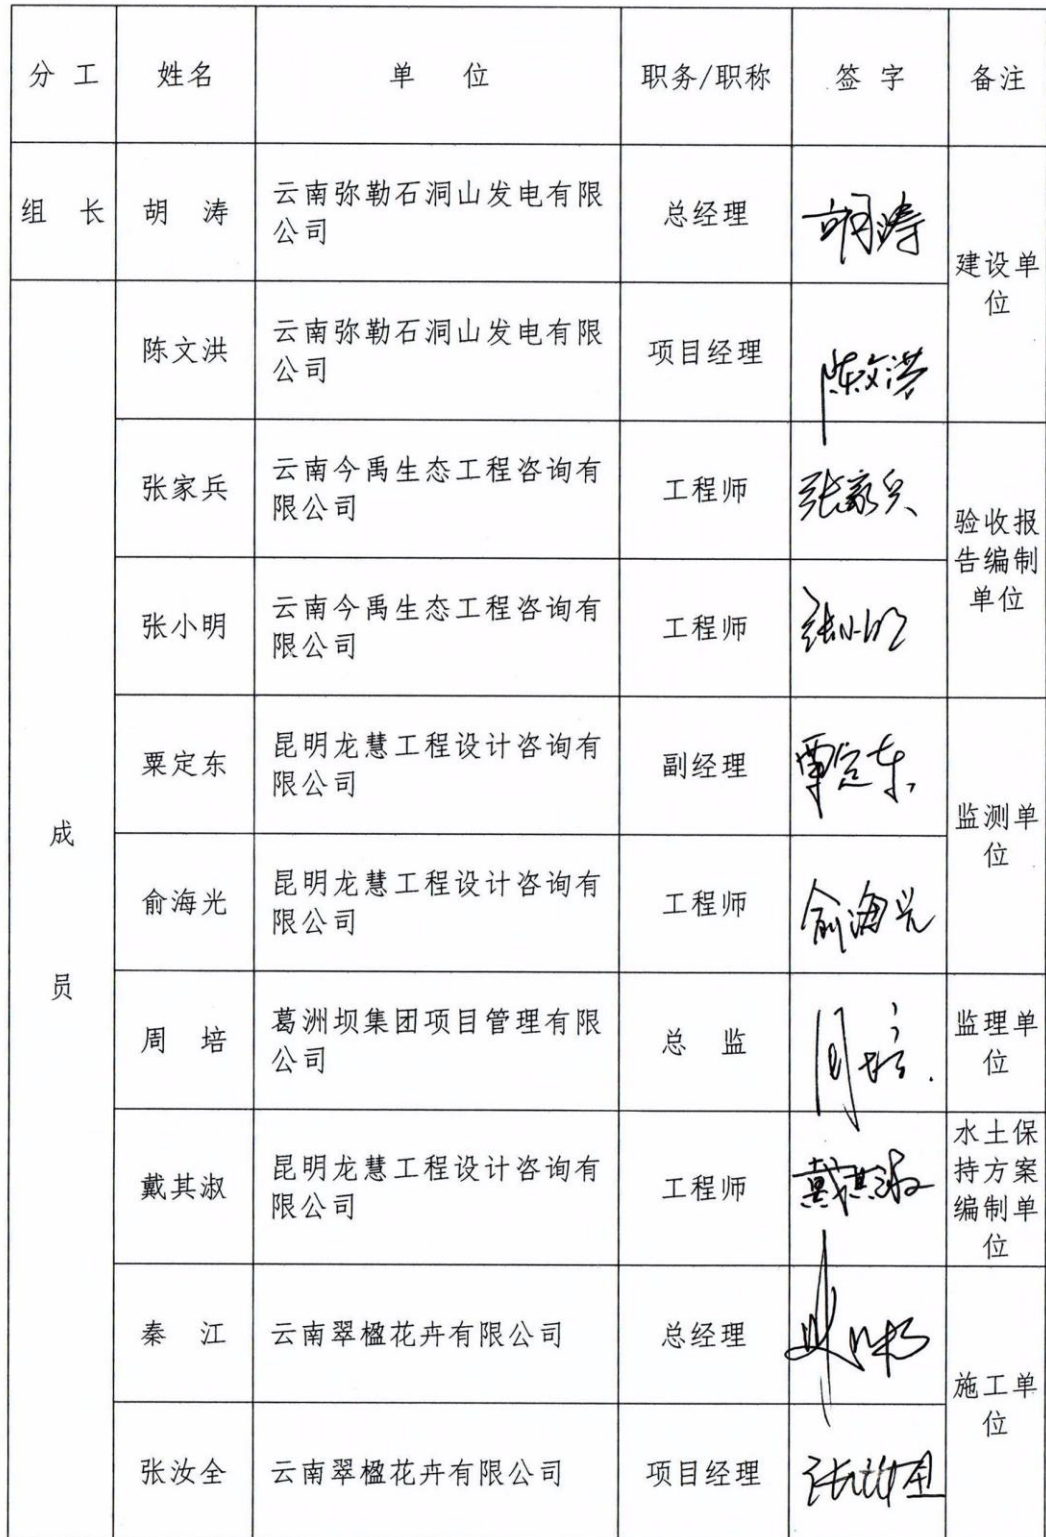 分 工 姓名 单 位 职务/职称 签 字 备注
组 长 胡 涛 云南弥勒石洞山发电有限公司 总经理 胡涛 建设单位
成员
陈文洪 云南弥勒石洞山发电有限公司 项目经理 陈文洪
张家兵 云南今禹生态工程咨询有限公司 工程师 张家兵 验收报告编制单位
张小明 云南今禹生态工程咨询有限公司 工程师 张小明
粟定东 昆明龙慧工程设计咨询有限公司 副经理 粟定东 监测单位
俞海光 昆明龙慧工程设计咨询有限公司 工程师 俞海光
周 培 葛洲坝集团项目管理有限公司 总 监 周培 监理单位
戴其淑 昆明龙慧工程设计咨询有限公司 工程师 戴其淑 水土保持方案编制单位
秦 江 云南翠楹花卉有限公司 总经理 施工单位
张汝全 云南翠楹花卉有限公司 项目经理 张汝全